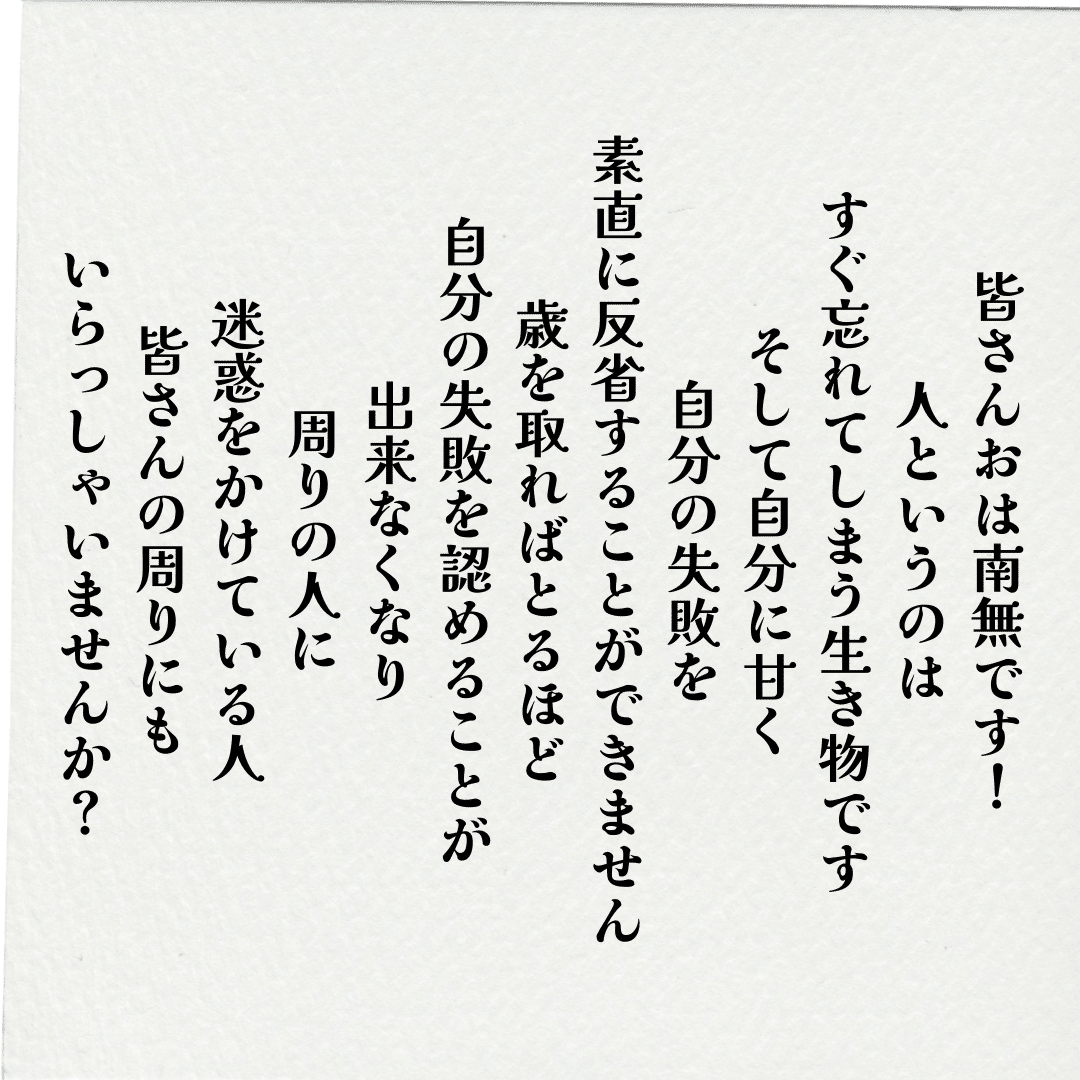 皆さんおは南無です！
人というのは
すぐ忘れてしまう生き物です
そして自分に甘く
自分の失敗を
素直に反省することができません
歳を取ればとるほど
自分の失敗を認めることが
出来なくなり
周りの人に
迷惑をかけている人
皆さんの周りにも
いらっしゃいませんか？